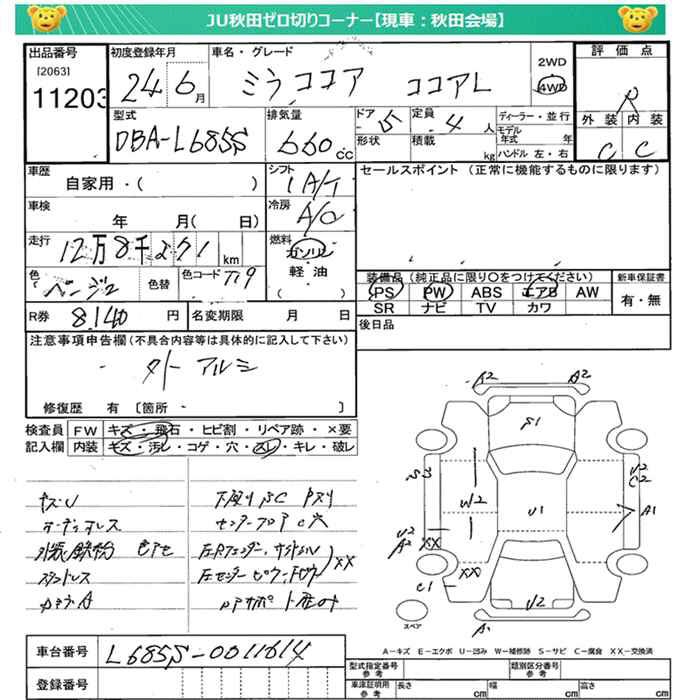 JU秋田ゼロ切りコーナー【現車：秋田会場】
出品番号 初度登録年月 車名・グレード 評価点
[2063]
11203 24 6月 ミラココア ココアL 2WD 4WD R
型式 排気量 ドア 定員 ディーラー・並行 外装 内装
DBA-L685S 660cc 5 4人 モデル年式 年 C C
形状 積載 kg ハンドル 左・右
車歴 シフト セールスポイント (正常に機能するものに限ります)
自家用・( ) IA/T
車検 冷房
年 月( 日) A/C
走行 燃料
12万8千271 km ガソリン
軽油
( )
色 ベージュ 色替 色コード T19
装備品(純正品に限り○をつけてください) 新車保証書
PS PW ABS エアB AW 有・無
SR ナビ TV カワ
R券 8.140円 名変期限 月 日
後日品
注意事項申告欄(不具合内容等は具体的に記入して下さい)
外アルミ
修復歴 有 [箇所・ ]
検査員 FW キズ・飛石・ヒビ割・リペア跡・×要
記入欄 内装 キズ・汚レ・コゲ・穴・スレ・キレ・破レ
キズU
オーディオレス
センターフロアC穴
外装鉄粉
XX
A2 A2
S1
U2
C2
W2 U1 A1
U2
A2 XX
C1 XX
U2
A1
スペア
A-キズ E-エクボ U-凹み W-補修跡 S-サビ C-腐食 XX-交換済
車台番号 L685S-0011614
登録番号
型式指定番号 参考 類別区分番号 参考
車庫証明用 参考 長さ cm 幅 cm 高さ cm